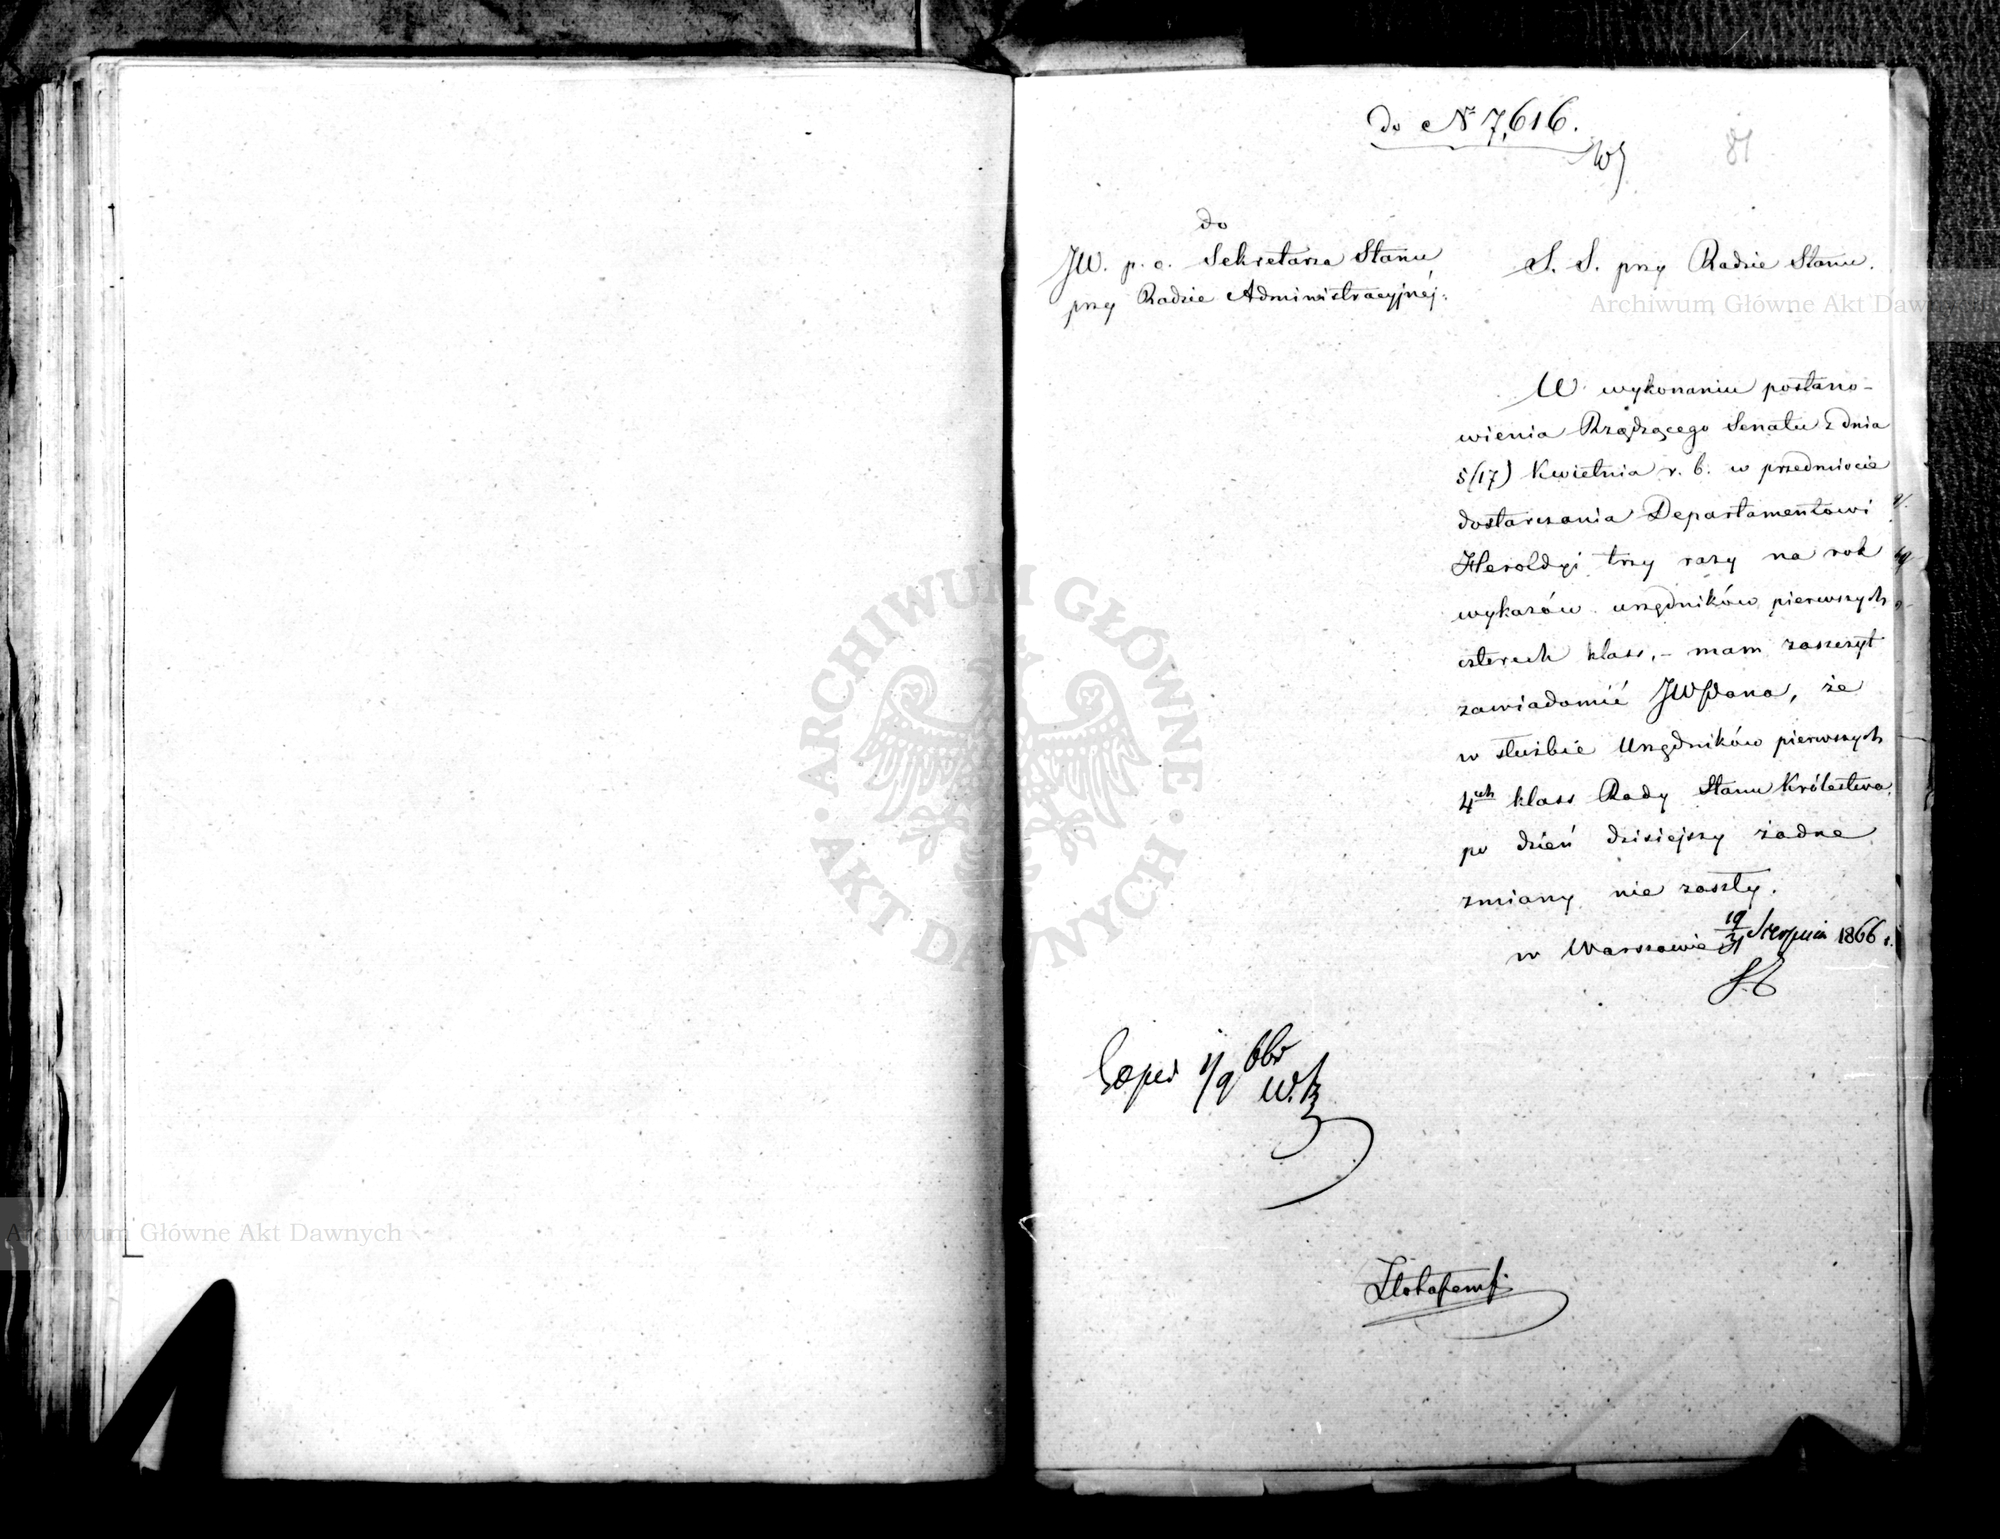 do Nr 7,616.
81
do
JW. p. o. Sekretarza Stanu
przy Radzie Administracyjnéj.
S. S. przy Radzie Stanu.
W wykonaniu postano-
wienia Rządzącego Senatu z dnia
5/17) Kwietnia r. b. w przedmiocie
dostarczania Departamentowi
Heroldyi trzy razy na rok
wykazów urzędników pierwszych
czterech klass, – mam zaszczyt
zawiadomić JWPana, że
w służbie Urzędników pierwszych
4ch klass Rady Stanu Królestwa
po dzień dzisiejszy żadne
zmiany nie zaszły.
w Warszawie 19/31 Sierpnia 1866 r.
1/9
Archiwum Główne Akt Dawnych
Archiwum Główne Akt Dawnych
ARCHIWUM GŁÓWNE
AKT DAWNYCH